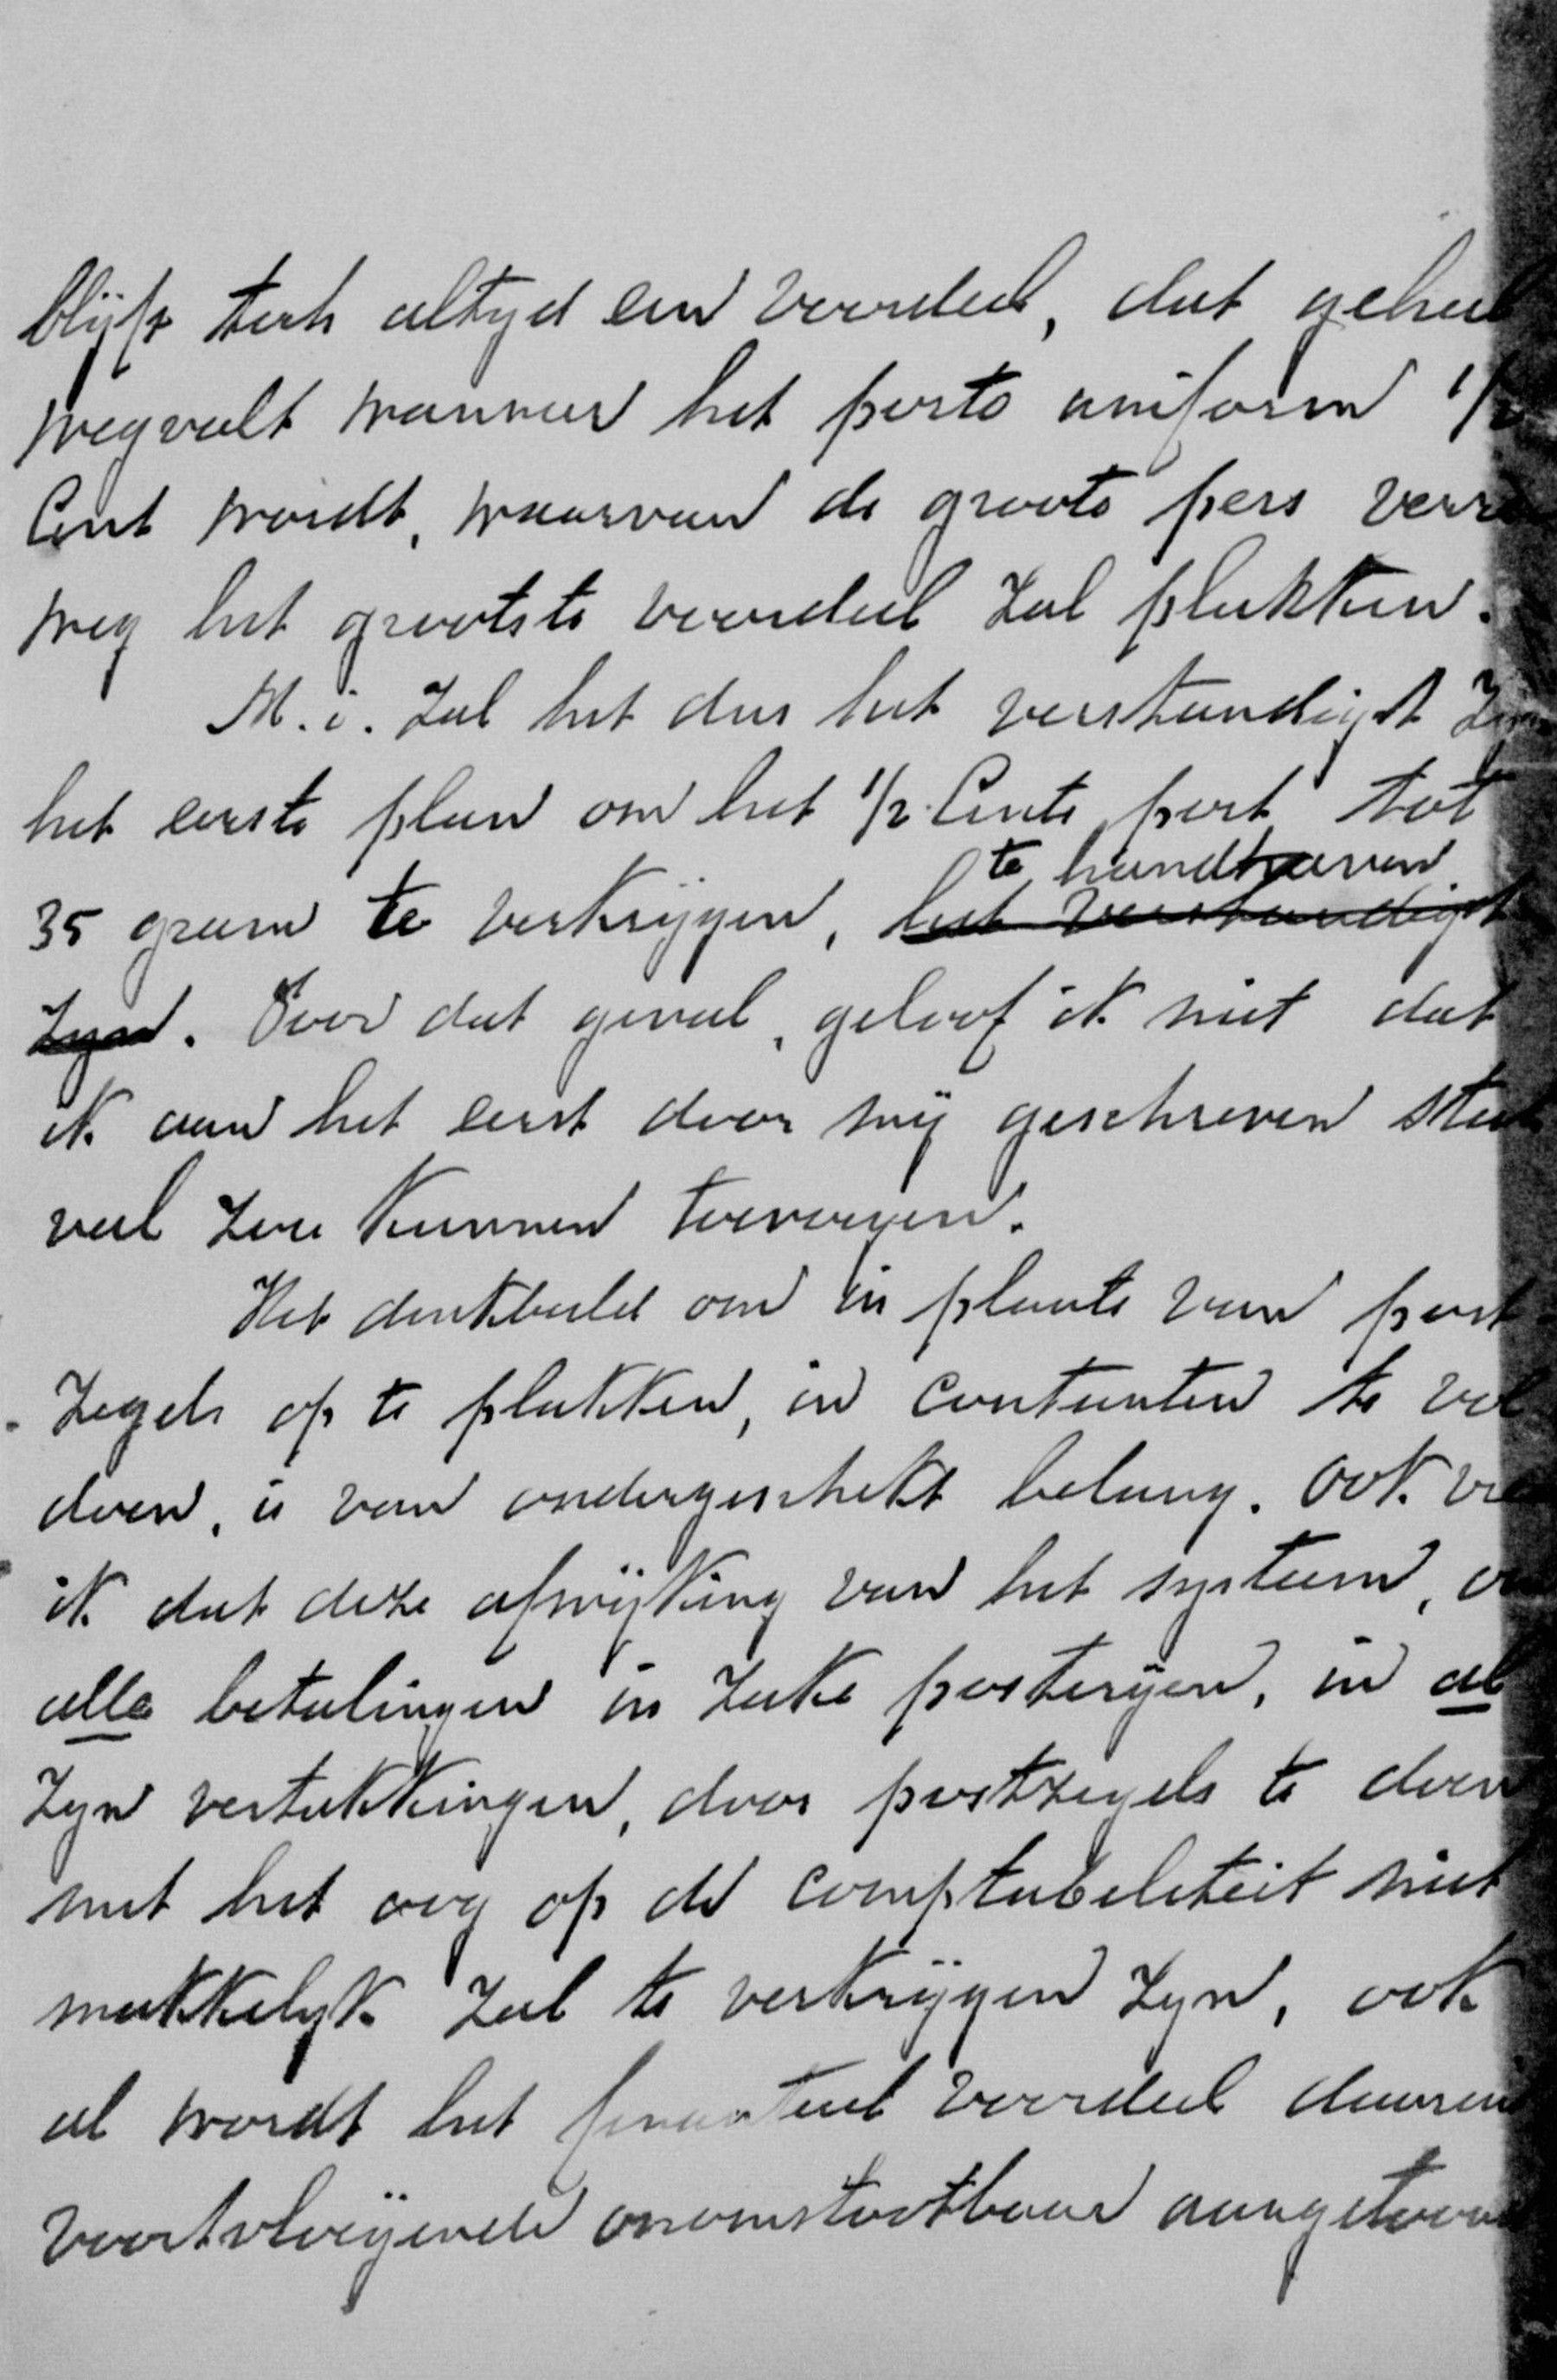 blijft toch altyd een voordeel, dat geheel
wegvalt wanneer het porto uniform 1/2
Cent wordt, waarvan de groote pers verre
weg het grootste voordeel zal plukken.
M. i. zal het dus het verstandigst zyn
het eerste plan om het 1/2 Cents port tot
te handhaven
35 gram te verkrijgen, het verstandigst
zyn. Voor dat geval, geloof ik niet dat
ik aan het eerst door mij geschreven stuk
veel zou kunnen toevoegen.
Het denkbeeld om in plaats van post-
zegels op te plakken, in contanten te vol
doen, is van ondergeschikt belang. Ook
ik dat deze afwijking van het systeem,
alle betalingen in zake posteryen, in al
zyn vertakkingen, door postzegels te doen
met het oog op de comptabeliteit niet
makkelyk zal te verkrijgen zyn, ook
al wordt het finantieel voordeel daaruit
voortvloeijende onomstootbaar aangetoond